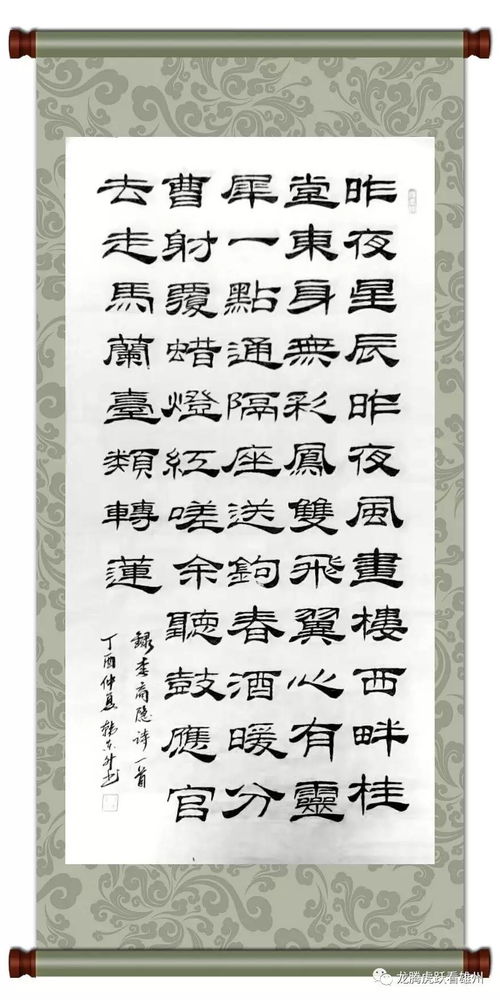 昨夜星辰昨夜風畫樓西畔桂
堂東身無彩鳳雙飛翼心有靈
犀一點通隔座送鉤春酒暖分
曹射覆蜡燈紅嗟余聽鼓應官
去走馬蘭臺類轉蓮
録李商隐诗一首
丁酉仲夏韩东升书
龙腾虎跃看雄州